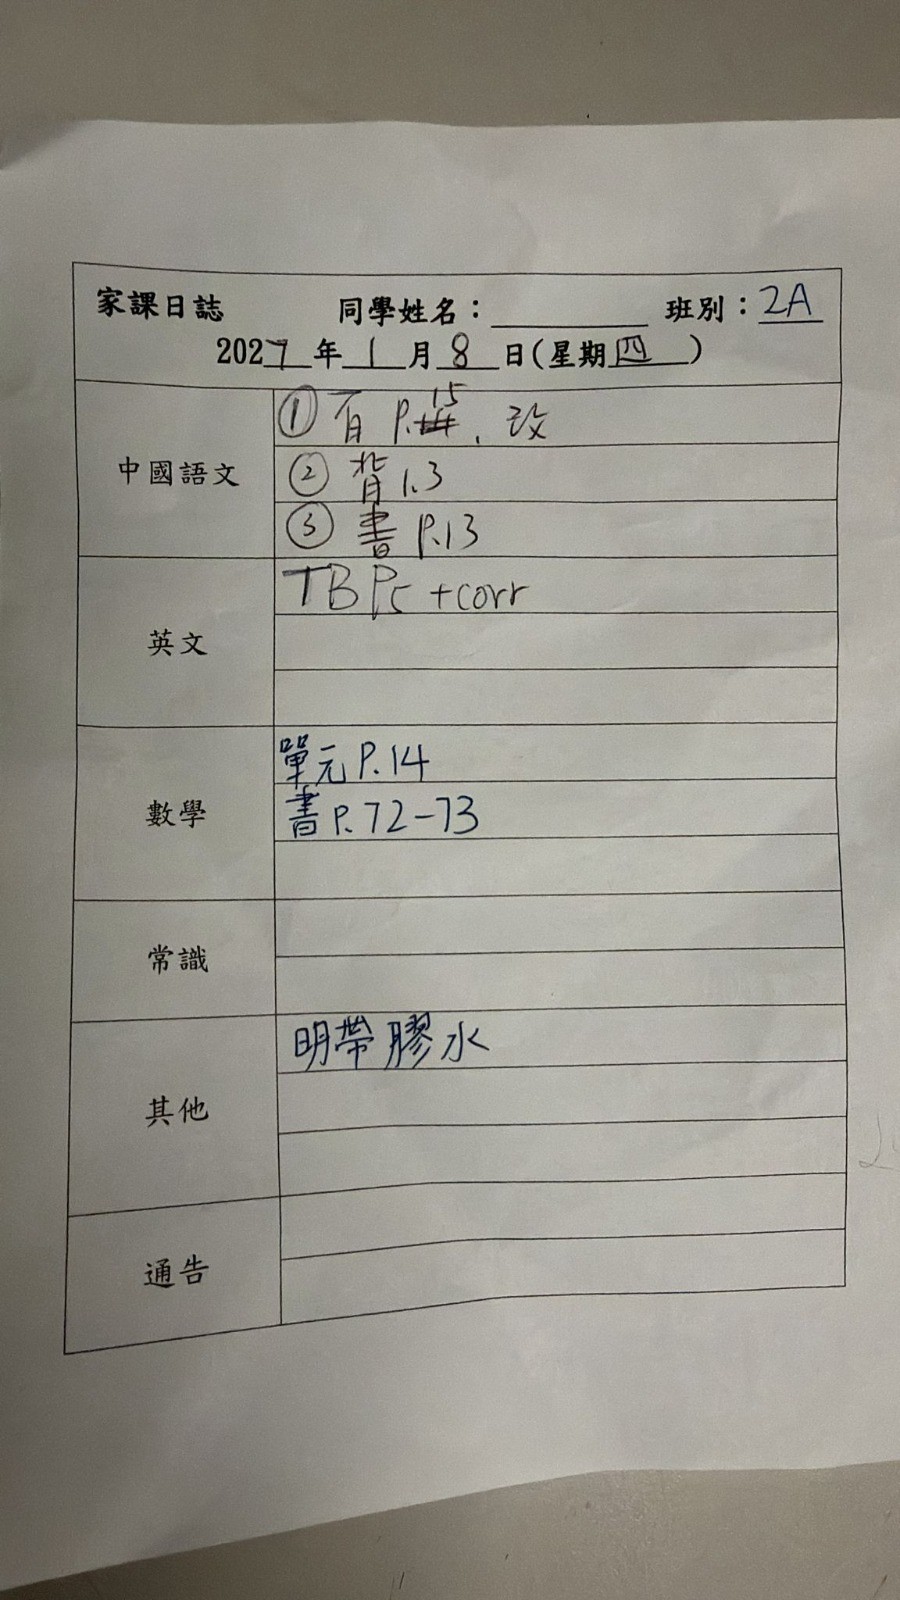 家課日誌 同學姓名：________ 班別：2A
2027年1月8日(星期四)
中國語文
① 有 P.15. 改
② 背 1.3
③ 書 P.13
英文
TB P5 +corr
數學
單元 P.14
書 P.72-73
常識
其他
明帶膠水
通告